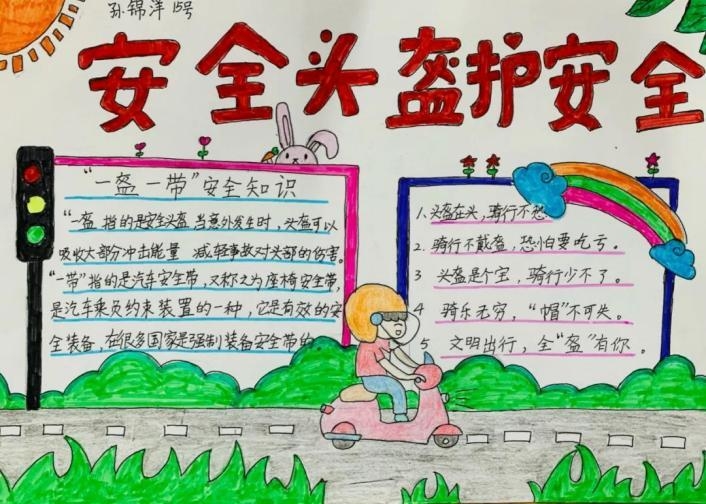 孙锦洋 15号
安全头盔护安全
“一盔一带”安全知识
“一盔 指的是安全头盔,当意外发生时,头盔可以
吸收大部分冲击能量 减轻事故对头部的伤害。
“一带”指的是汽车安全带,又称之为座椅安全带,
是汽车乘员约束装置的一种,它是有效的安
全装备,在很多国家是强制装备安全带的
1、头盔在头,骑行不愁
2、骑行不戴盔,恐怕要吃亏。
3 头盔是个宝,骑行少不了。
4 骑乐无穷,“帽”不可失。
5 文明出行,全“盔”有你。